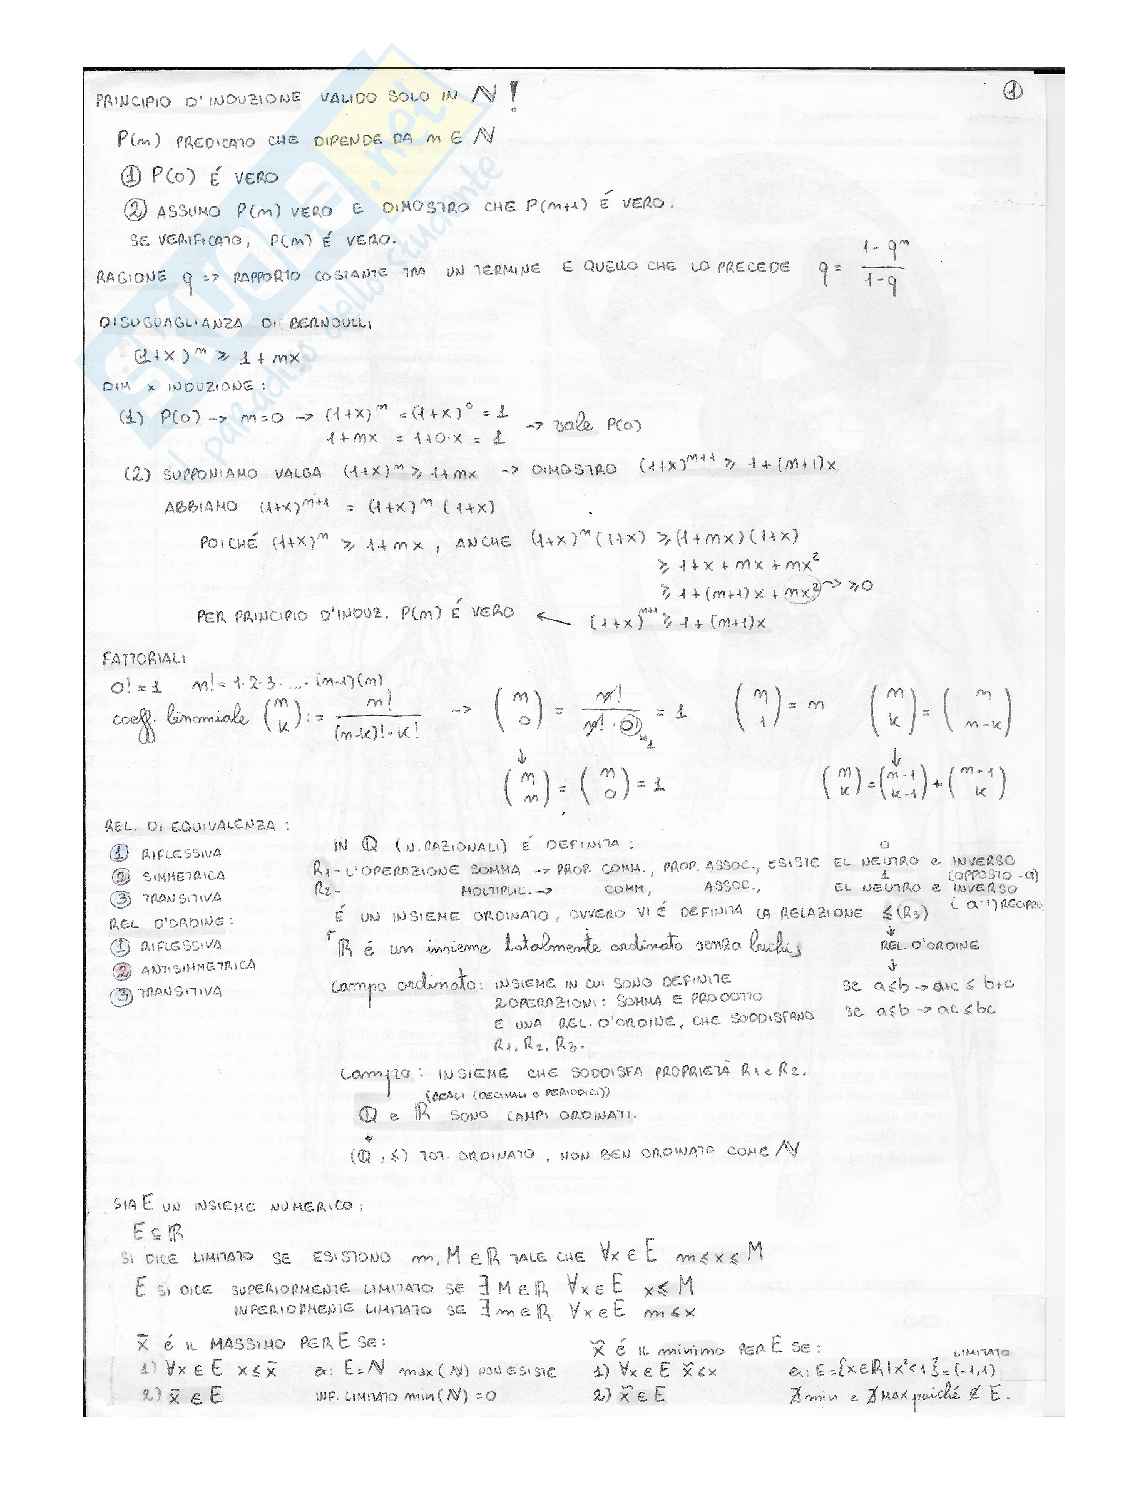 ①
PRINCIPIO D'INDUZIONE VALIDO SOLO IN ℕ !
P(m) PREDICATO CHE DIPENDE DA m ∈ ℕ
① P(0) É VERO
② ASSUMO P(m) VERO E DIMOSTRO CHE P(m+1) É VERO.
SE VERIFICATO, P(m) É VERO.
RAGIONE q => RAPPORTO COSTANTE TRA UN TERMINE E QUELLO CHE LO PRECEDE q = (1-q^m)/(1-q)
DISUGUAGLIANZA DI BERNOULLI
(1+x)^m ≥ 1+mx
DIM x INDUZIONE:
(1) P(0) -> m=0 -> (1+x)^m = (1+x)^0 = 1
1+mx = 1+0·x = 1 -> vale P(0)
(2) SUPPONIAMO VALGA (1+x)^m ≥ 1+mx -> DIMOSTRO (1+x)^(m+1) ≥ 1+(m+1)x
ABBIAMO (1+x)^(m+1) = (1+x)^m (1+x)
POICHÉ (1+x)^m ≥ 1+mx, ANCHE (1+x)^m (1+x) ≥ (1+mx)(1+x)
≥ 1+x+mx+mx²
≥ 1+(m+1)x+mx² -> ≥0
PER PRINCIPIO D'INDUZ. P(m) É VERO ← (1+x)^(m+1) ≥ 1+(m+1)x
FATTORIALI
0! = 1 m! = 1·2·3·...·(m-1)(m)
coeff. binomiale (m k) := m!/((m-k)!·k!) -> (m 0) = m!/(m!·0!) = 1 (m 1) = m (m k) = (m m-k)
↓ ↓
(m m) = (m 0) = 1 (m k) = (m-1 k-1) + (m-1 k)
REL. DI EQUIVALENZA:
① RIFLESSIVA
② SIMMETRICA
③ TRANSITIVA
REL D'ORDINE:
① RIFLESSIVA
② ANTISIMMETRICA
③ TRANSITIVA
IN ℚ (N. RAZIONALI) É DEFINITA:
R1- L'OPERAZIONE SOMMA -> PROP. COMM., PROP. ASSOC., ESISTE EL NEUTRO 0 e INVERSO (OPPOSTO -a)
R2- MOLTIPLIC. -> COMM, ASSOC., EL NEUTRO 1 e INVERSO (a^-1) RECIPR
É UN INSIEME ORDINATO, OVVERO VI É DEFINITA LA RELAZIONE ≤ (R3)
↓
REL. D'ORDINE
↓
se a≤b -> a+c ≤ b+c
se a≤b -> ac ≤ bc
ℝ é un insieme totalmente ordinato senza buchi
Campo ordinato: INSIEME IN CUI SONO DEFINITE
2 OPERAZIONI: SOMMA E PRODOTTO
E UNA REL. D'ORDINE, CHE SODDISFANO
R1, R2, R3.
Campo: INSIEME CHE SODDISFA PROPRIETÀ R1 e R2.
(REALI (DECIMALI o PERIODICI))
ℚ e ℝ SONO CAMPI ORDINATI.
(ℚ, ≤) TOT. ORDINATO, NON BEN ORDINATO COME ℕ
SIA E UN INSIEME NUMERICO:
E ⊆ ℝ
SI DICE LIMITATO SE ESISTONO m, M ∈ ℝ TALE CHE ∀x ∈ E m ≤ x ≤ M
E SI DICE SUPERIORMENTE LIMITATO SE ∃ M ∈ ℝ ∀x ∈ E x ≤ M
INFERIORMENTE LIMITATO SE ∃ m ∈ ℝ ∀x ∈ E m ≤ x
x̄ é IL MASSIMO PER E SE:
1) ∀x ∈ E x ≤ x̄ es: E = ℕ max(ℕ) NON ESISTE
2) x̄ ∈ E INF. LIMITATO min(ℕ) = 0
x̃ é IL minimo PER E SE:
1) ∀x ∈ E x̃ ≤ x es: E = {x ∈ ℝ | x² < 1} = (-1,1) LIMITATO
2) x̃ ∈ E ∄ min e ∄ MAX poiché ∉ E.
SKUOLA.net
il paradiso dello studente